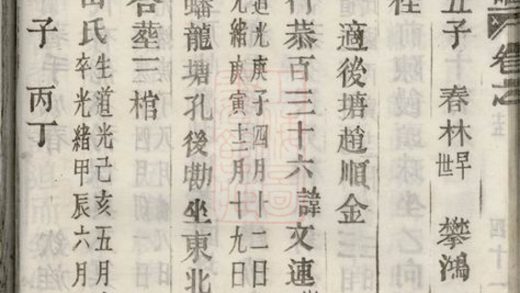 卷之
五子 春林早世 攀鴻
適後塘趙順金
行恭百三十六諱文連
道光庚子四月十二日
光緒庚寅十二月十九日
蟠龍塘孔後勘坐東北
塟三棺
氏生道光己亥五月
卒光緒甲辰六月
子 丙丁